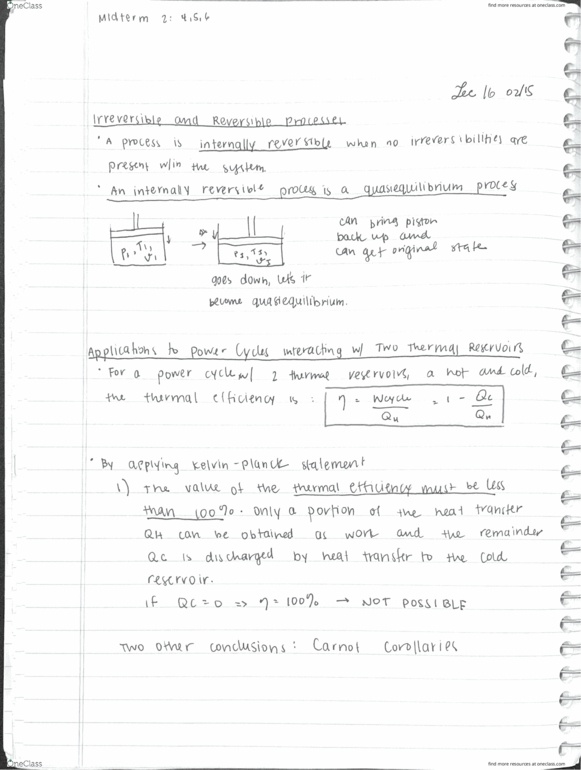 OneClass
find more resources at oneclass.com
Midterm 2: 4,5,6
Lec 16 02/15
Irreversible and Reversible Processes
· A process is internally reversible when no irreversibilities are
present w/in the system
· An internally reversible process is a quasiequilibrium process
can bring piston
back up and
can get original state
P1, T1,
v1
goes down, lets it
become quasiequilibrium.
Applications to Power Cycles interacting w/ Two Thermal Reservoirs
· For a power cycle w/ 2 thermal reservoirs, a hot and cold,
the thermal efficiency is : η = Wcycle / QH = 1 - QC / QH
· By applying Kelvin-Planck statement
1) The value of the thermal efficiency must be less
than 100%. Only a portion of the heat transfer
QH can be obtained as work and the remainder
QC is discharged by heat transfer to the cold
reservoir.
if QC = 0 => η = 100% → NOT POSSIBLE
Two other conclusions: Carnot Corollaries
OneClass
find more resources at oneclass.com